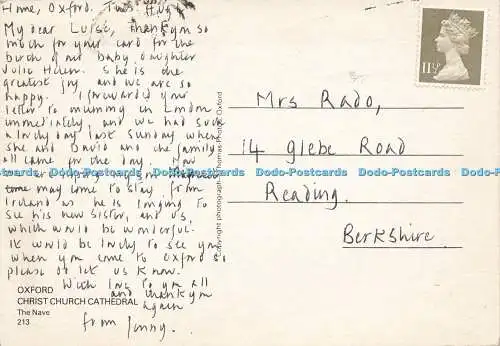 Home, Oxford. Tues
My dear Luise, thank you so
much for your card for the
birth of our baby daughter
Julie Helen. She is the
greatest joy and we are so
happy. I forwarded your
letter to mummy in London
immediately and we had such
a lovely day last Sunday when
she and David and the family
all came for the day. Now
may come to stay from
Ireland as he is longing to
see his new sister, and us,
which would be wonderful.
It would be lovely to see you
when you come to Oxford so
please do let us know.
With love to you all
and thank you
again
from Jenny.
OXFORD
CHRIST CHURCH CATHEDRAL
The Nave
213
Copyright photograph Thomas-Photos Oxford
11½P
Mrs Rado,
14 Glebe Road
Reading.
Berkshire.
Dodo-Postcards Dodo-Postcards Dodo-Postcards Dodo-Postcards Dodo-Postcards Dodo-Postcards